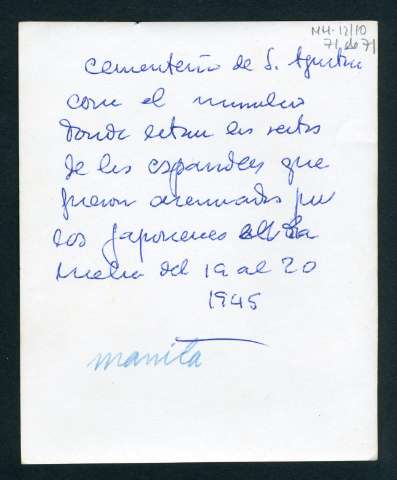 MH-12/10
71 de 71
Cementerio de S. Agustin
con el numero
donde estan los restos
de los españoles que
fueron asesinados por
los Japoneses la
noche del 19 al 20
1945
manila